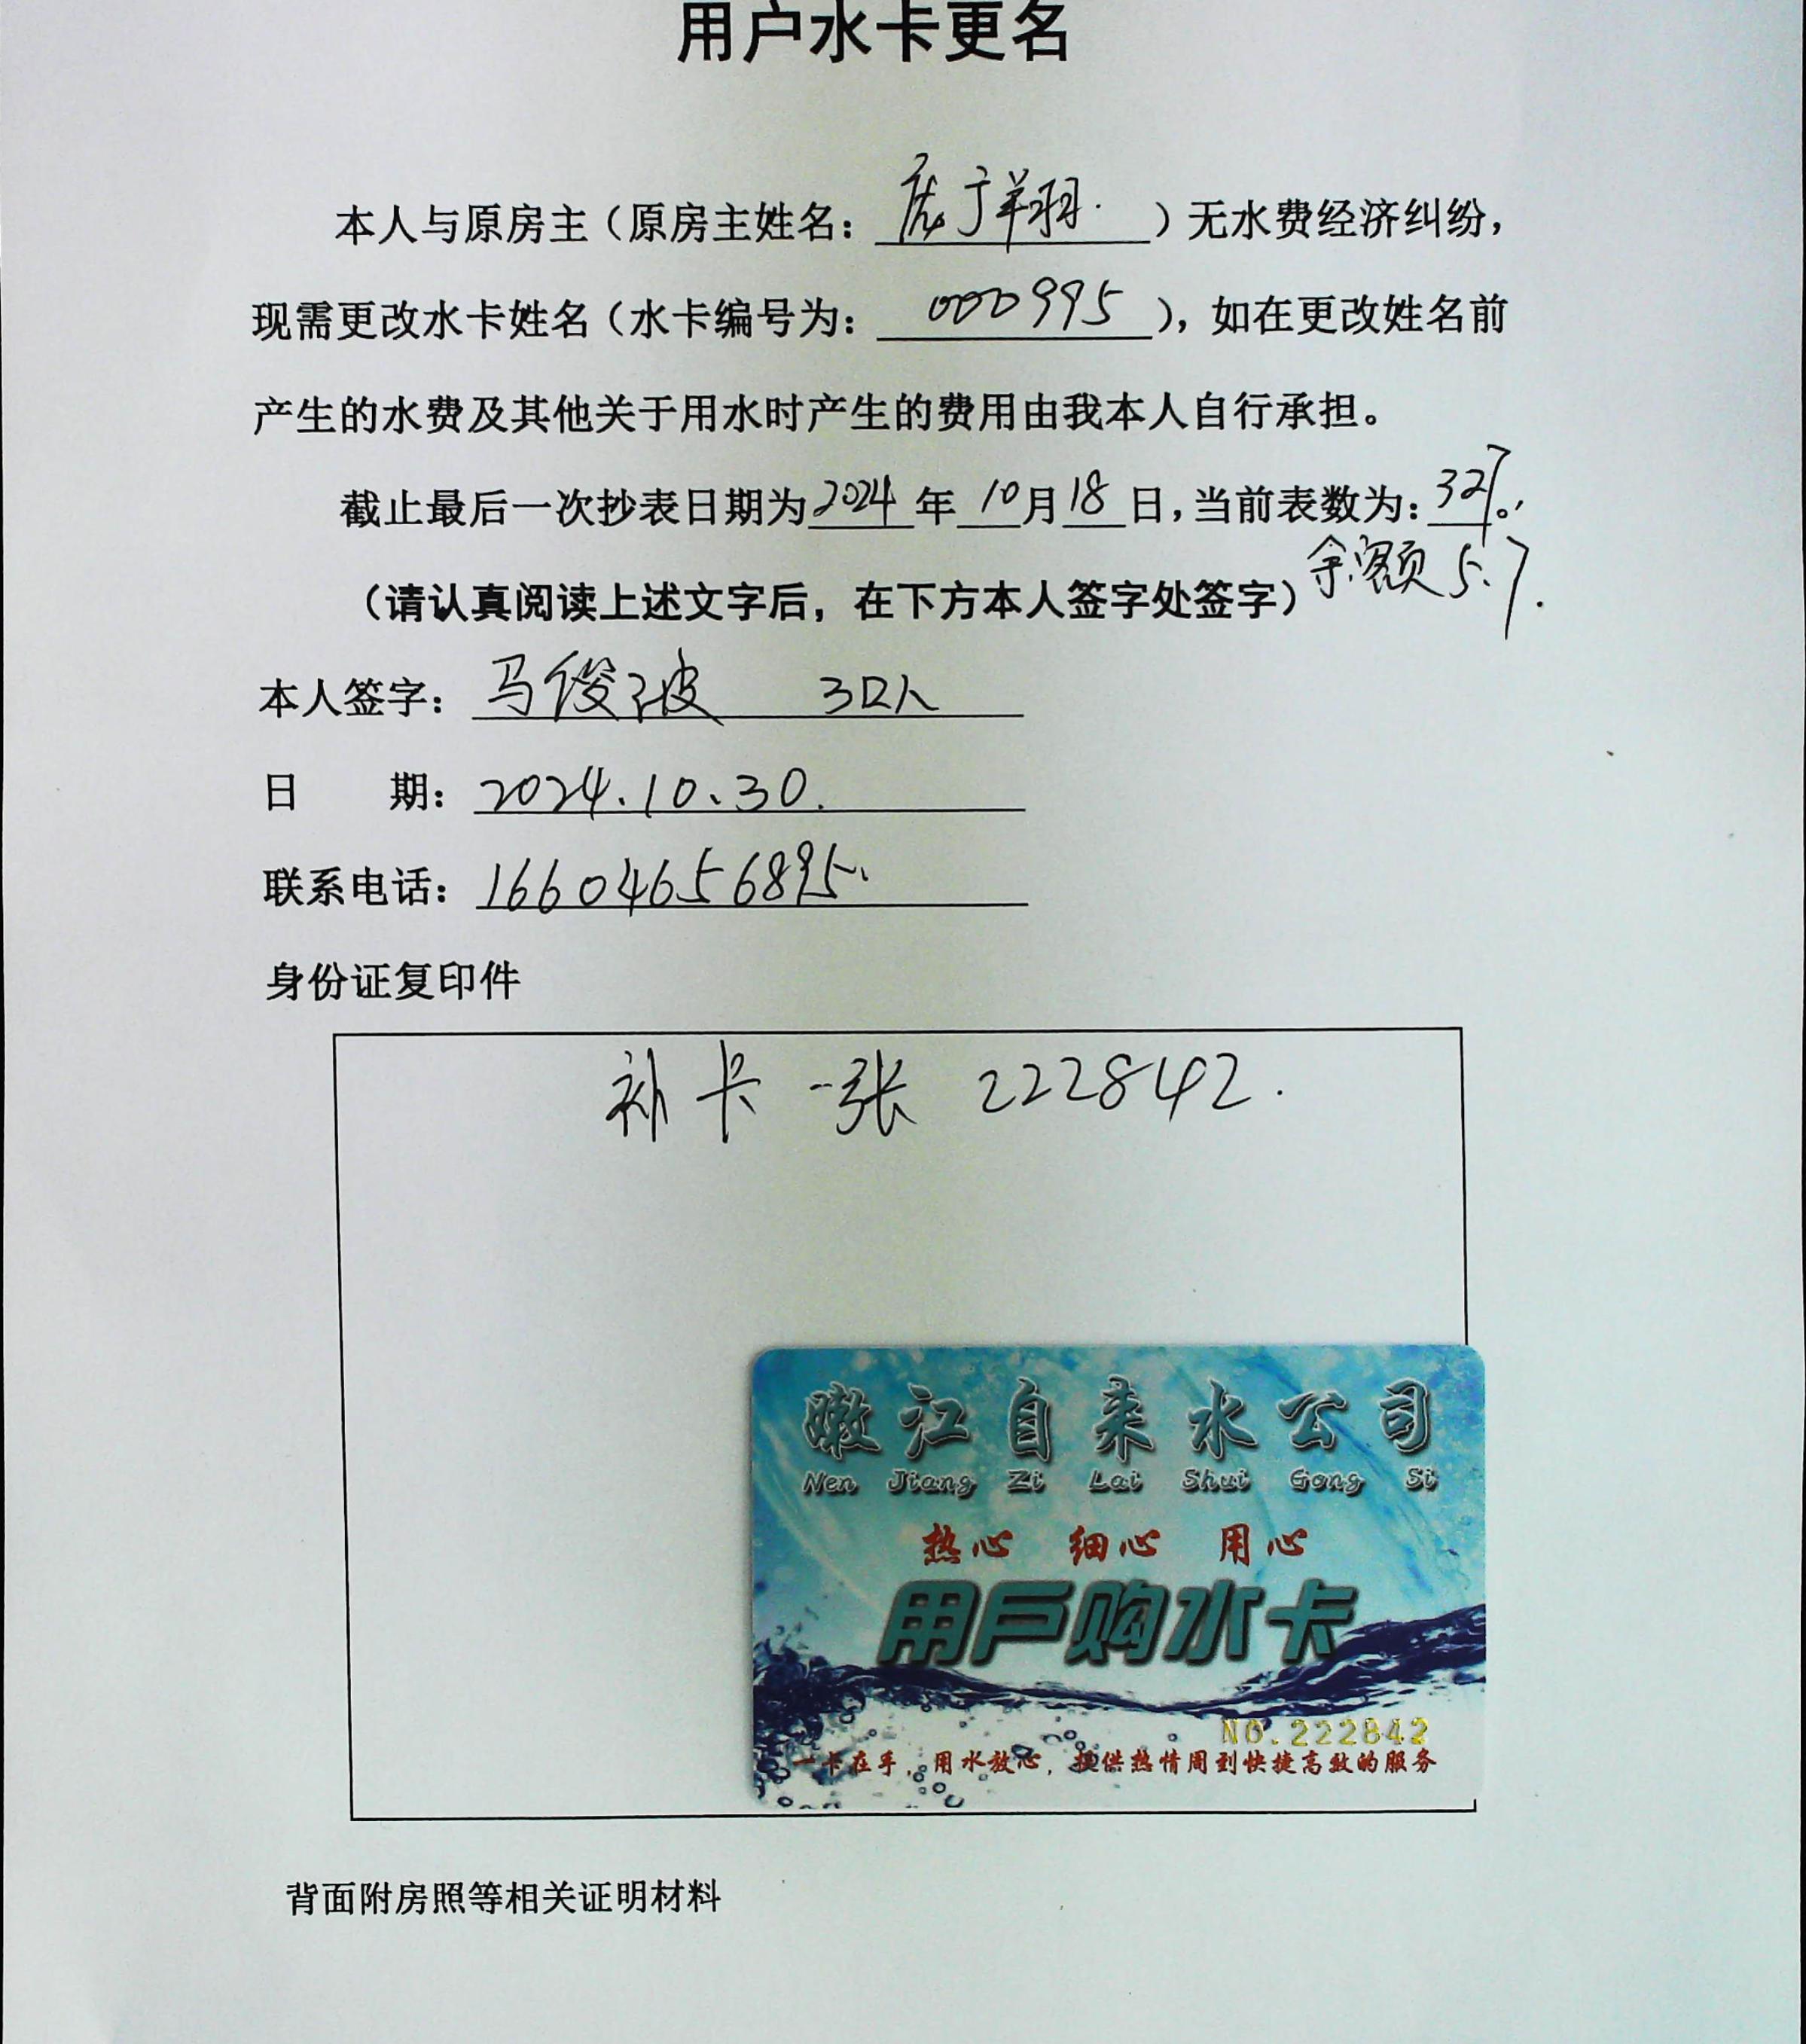 用户水卡更名
本人与原房主（原房主姓名：庞广祥羽）无水费经济纠纷，
现需更改水卡姓名（水卡编号为：000995），如在更改姓名前
产生的水费及其他关于用水时产生的费用由我本人自行承担。
截止最后一次抄表日期为2024年10月18日，当前表数为：327。
余额5.7.
（请认真阅读上述文字后，在下方本人签字处签字）
本人签字：马俊波 3口人
日 期：2024.10.30.
联系电话：16604656895.
身份证复印件
补卡一张 222842.
嫩江自来水公司
Nen Jiang Zi Lai Shui Gong Si
热心 细心 用心
用户购水卡
NO.222842
一卡在手，用水放心，提供热情周到快捷高效的服务
背面附房照等相关证明材料